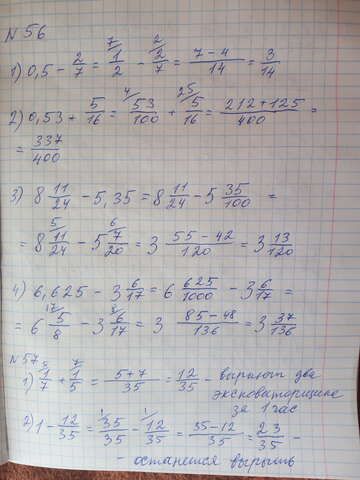 № 56
1) 0,5 - 2/7 = 7/ 1/2 - 2/ 2/7 = (7-4)/14 = 3/14
2) 0,53 + 5/16 = 4/ 53/100 + 25/ 5/16 = (212+125)/400 =
= 337/400
3) 8 11/24 - 5,35 = 8 11/24 - 5 35/100 =
= 8 5/ 11/24 - 5 6/ 7/20 = 3 (55-42)/120 = 3 13/120
4) 6,625 - 3 6/17 = 6 625/1000 - 3 6/17 =
= 6 17/ 5/8 - 3 8/ 6/17 = 3 (85-48)/136 = 3 37/136
№ 57
1) 5/ 1/7 + 7/ 1/5 = (5+7)/35 = 12/35 - выроют два
экскаваторщика
за 1 час
2) 1 - 12/35 = 1/ 35/35 - 1/ 12/35 = (35-12)/35 = 23/35 -
- останется вырыть